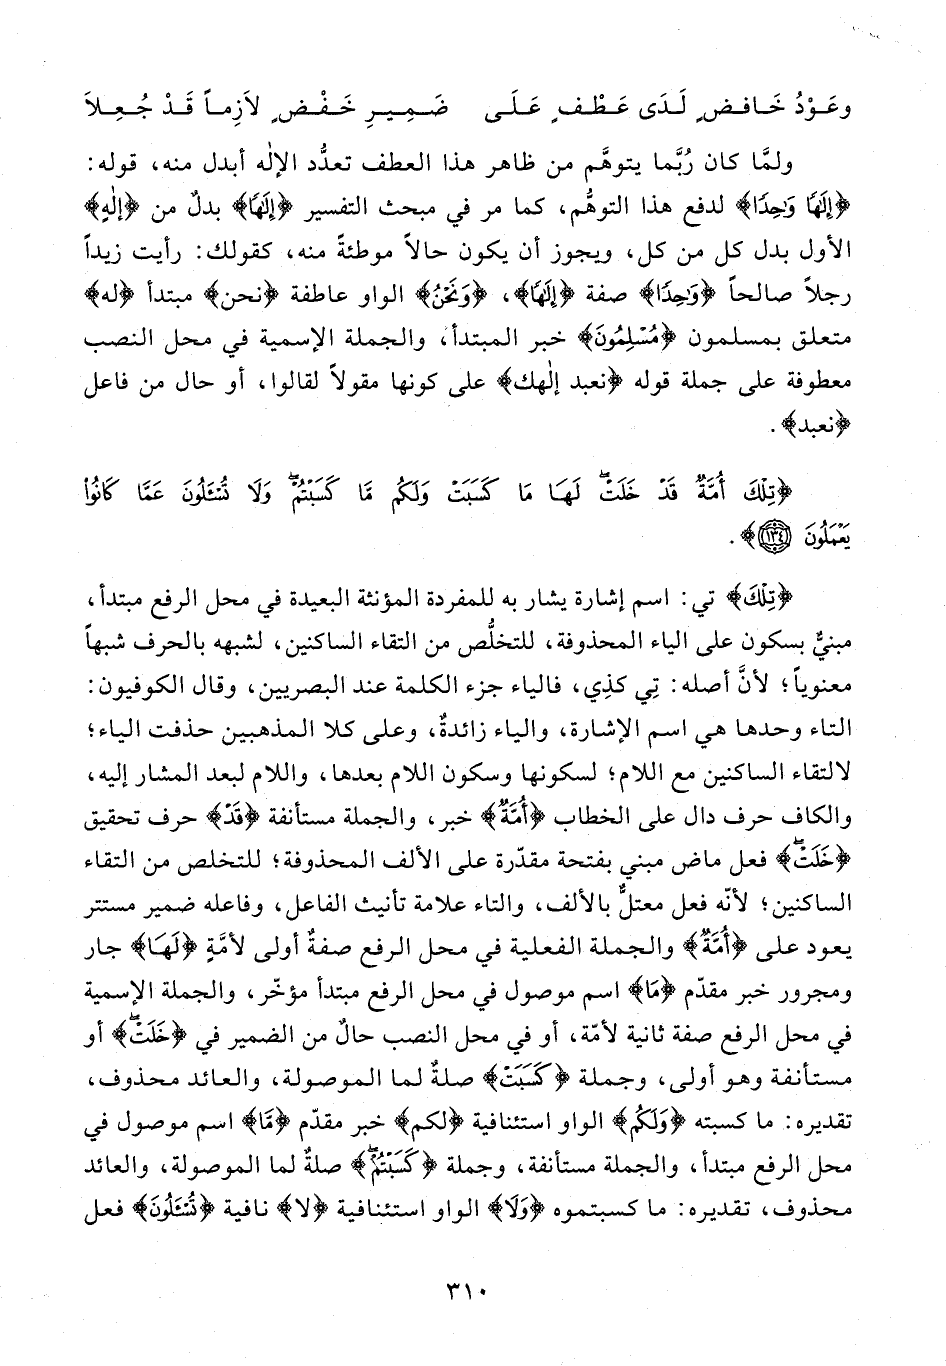 وعَوْدُ خَافضٍ لَدَى عَطْفٍ عَلَى ضَمِيرِ خَفْضٍ لاَزِماً قَدْ جُعِلاَ
ولمَّا كان رُبَّما يتوهَّم من ظاهر هذا العطف تعدُّد الإلٰه أبدل منه، قوله:
﴿إِلَٰهًا وَٰحِدًا﴾ لدفع هذا التوهُّم، كما مر في مبحث التفسير ﴿إِلَٰهًا﴾ بدلٌ من ﴿إلٰهٍ﴾
الأول بدل كل من كل، ويجوز أن يكون حالاً موطئةً منه، كقولك: رأيت زيداً
رجلاً صالحاً ﴿وَٰحِدًا﴾ صفة ﴿إِلَٰهًا﴾، ﴿وَنَحْنُ﴾ الواو عاطفة ﴿نحن﴾ مبتدأ ﴿له﴾
متعلق بمسلمون ﴿مُسْلِمُونَ﴾ خبر المبتدأ، والجملة الإسمية في محل النصب
معطوفة على جملة قوله ﴿نعبد إلٰهك﴾ على كونها مقولاً لقالوا، أو حال من فاعل
﴿نعبد﴾.
﴿تِلْكَ أُمَّةٌ قَدْ خَلَتْۖ لَهَا مَا كَسَبَتْ وَلَكُم مَّا كَسَبْتُمْۖ وَلَا تُسْـَٔلُونَ عَمَّا كَانُوا۟
يَعْمَلُونَ ١٣٤﴾.
﴿تِلْكَ﴾ تي: اسم إشارة يشار به للمفردة المؤنثة البعيدة في محل الرفع مبتدأ،
مبنيٌّ بسكون على الياء المحذوفة، للتخلُّص من التقاء الساكنين، لشبهه بالحرف شبهاً
معنوياً؛ لأنَّ أصله: تِي كذِي، فالياء جزء الكلمة عند البصريين، وقال الكوفيون:
التاء وحدها هي اسم الإشارة، والياء زائدةٌ، وعلى كلا المذهبين حذفت الياء؛
لالتقاء الساكنين مع اللام؛ لسكونها وسكون اللام بعدها، واللام لبعد المشار إليه،
والكاف حرف دال على الخطاب ﴿أُمَّةٌ﴾ خبر، والجملة مستأنفة ﴿قَدْ﴾ حرف تحقيق
﴿خَلَتْۖ﴾ فعل ماض مبني بفتحة مقدّرة على الألف المحذوفة؛ للتخلص من التقاء
الساكنين؛ لأنّه فعل معتلٌّ بالألف، والتاء علامة تأنيث الفاعل، وفاعله ضمير مستتر
يعود على ﴿أُمَّةٌ﴾ والجملة الفعلية في محل الرفع صفةٌ أولى لأمَّةٍ ﴿لَهَا﴾ جار
ومجرور خبر مقدّم ﴿مَا﴾ اسم موصول في محل الرفع مبتدأ مؤخّر، والجملة الإسمية
في محل الرفع صفة ثانية لأمّة، أو في محل النصب حالٌ من الضمير في ﴿خَلَتْۖ﴾ أو
مستأنفة وهو أولى، وجملة ﴿كَسَبَتْ﴾ صلةٌ لما الموصولة، والعائد محذوف،
تقديره: ما كسبته ﴿وَلَكُم﴾ الواو استئنافية ﴿لكم﴾ خبر مقدّم ﴿مَّا﴾ اسم موصول في
محل الرفع مبتدأ، والجملة مستأنفة، وجملة ﴿كَسَبْتُمْۖ﴾ صلةٌ لما الموصولة، والعائد
محذوف، تقديره: ما كسبتموه ﴿وَلَا﴾ الواو استئنافية ﴿لا﴾ نافية ﴿تُسْـَٔلُونَ﴾ فعل
٣١٠